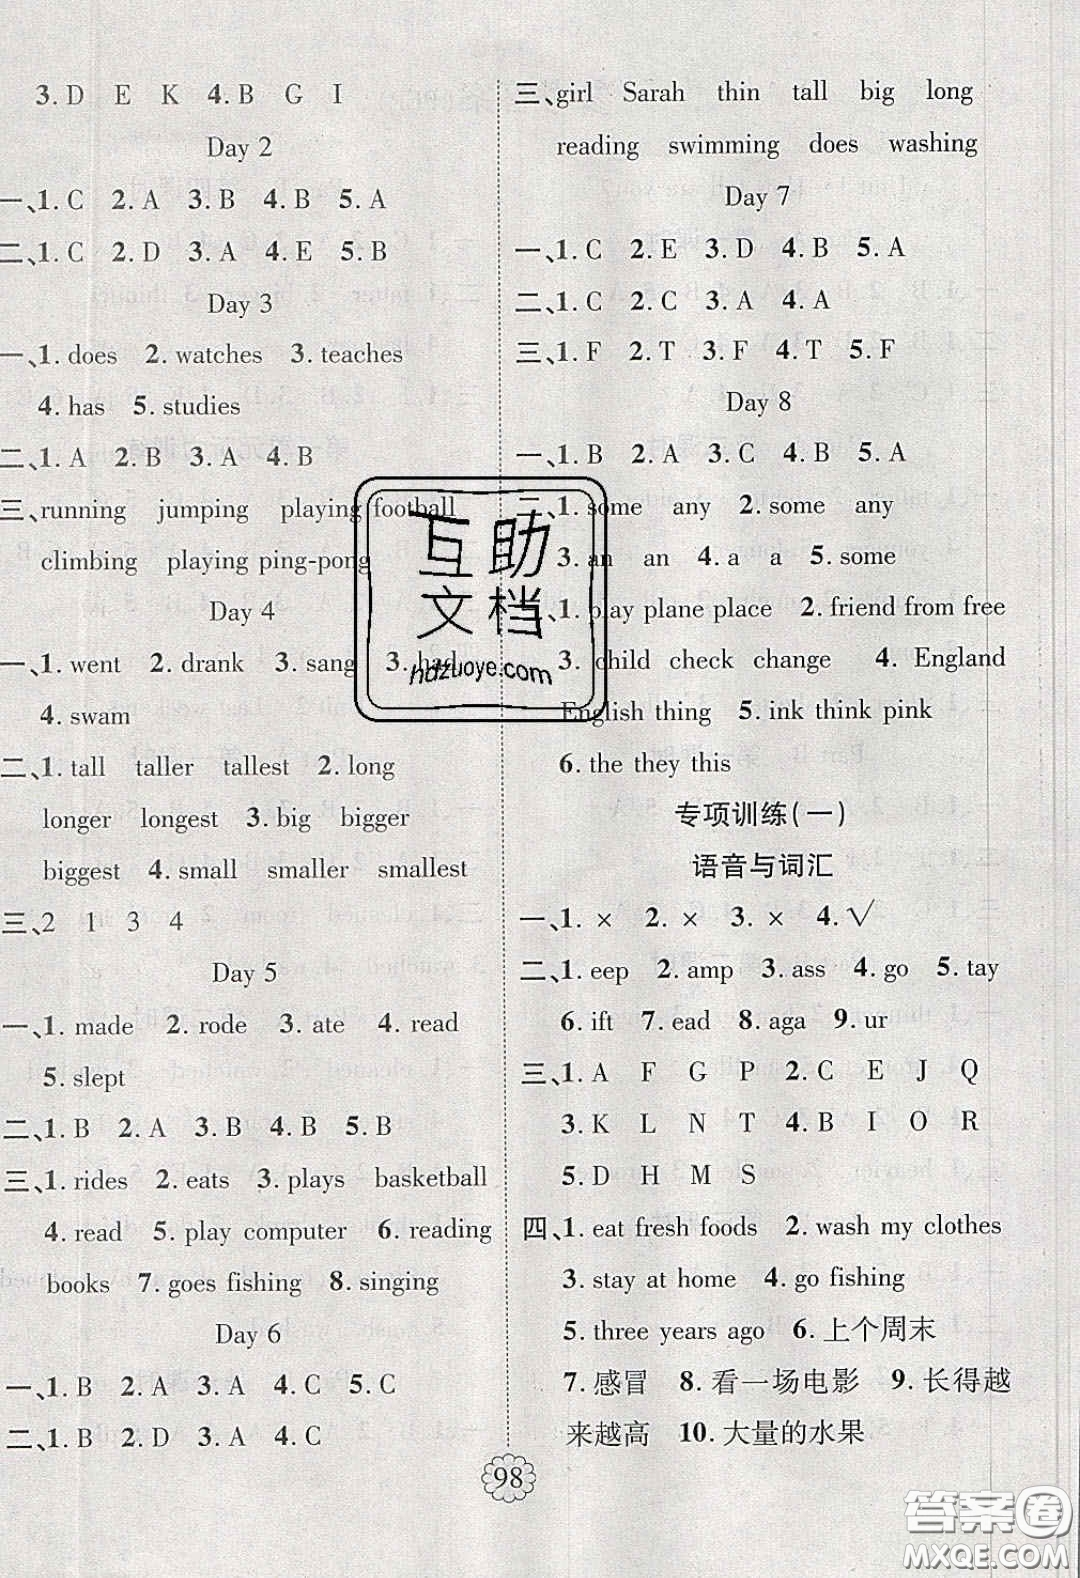 3. D E K 4. B G I
Day 2
一、1. C 2. A 3. B 4. B 5. A
二、1. C 2. D 3. A 4. E 5. B
Day 3
一、1. does 2. watches 3. teaches
4. has 5. studies
二、1. A 2. B 3. A 4. B
三、running jumping playing football
climbing playing ping-pong
Day 4
一、1. went 2. drank 3. sang 3. had
4. swam
二、1. tall taller tallest 2. long
longer longest 3. big bigger
biggest 4. small smaller smallest
三、2 1 3 4
Day 5
一、1. made 2. rode 3. ate 4. read
5. slept
二、1. B 2. A 3. B 4. B 5. B
三、1. rides 2. eats 3. plays basketball
4. read 5. play computer 6. reading
books 7. goes fishing 8. singing
Day 6
一、1. B 2. A 3. A 4. C 5. C
二、1. B 2. D 3. A 4. C
三、girl Sarah thin tall big long
reading swimming does washing
Day 7
一、1. C 2. E 3. D 4. B 5. A
二、1. C 2. C 3. A 4. A
三、1. F 2. T 3. F 4. T 5. F
Day 8
一、1. B 2. A 3. C 4. B 5. A
二、1. some any 2. some any
3. an an 4. a a 5. some
1. play plane place 2. friend from free
3. child check change 4. England
English thing 5. ink think pink
6. the they this
专项训练(一)
语音与词汇
一、1. × 2. × 3. × 4. √
二、1. eep 2. amp 3. ass 4. go 5. tay
6. ift 7. ead 8. aga 9. ur
三、1. A F G P 2. C E J Q
3. K L N T 4. B I O R
5. D H M S
四、1. eat fresh foods 2. wash my clothes
3. stay at home 4. go fishing
5. three years ago 6. 上个周末
7. 感冒 8. 看一场电影 9. 长得越
来越高 10. 大量的水果
98
互助
文档
hdzuoye.com
答案圈
MXQE.COM